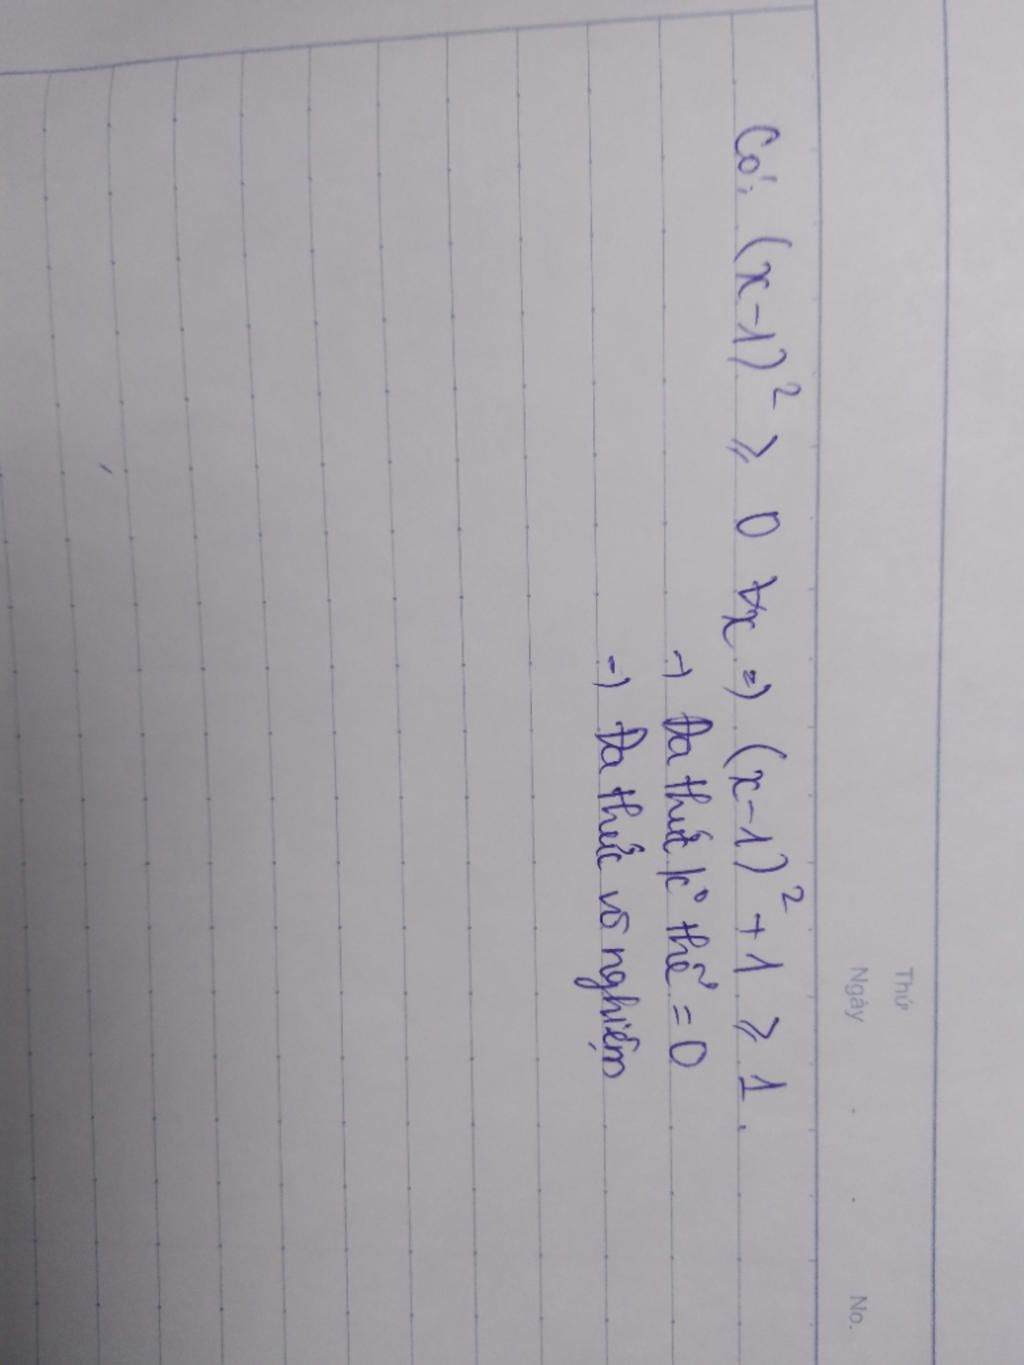 Thứ
Ngày . . No.
Có: (x-1)² ≥ 0 ∀x => (x-1)² + 1 ≥ 1.
=> Đa thức k° thể = 0
=> Đa thức vô nghiệm